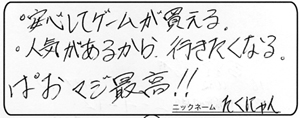 ・安心してゲームが買える。
・人気があるから行きたくなる。
ぱお マジ最高!!
ニックネーム たくにゃん